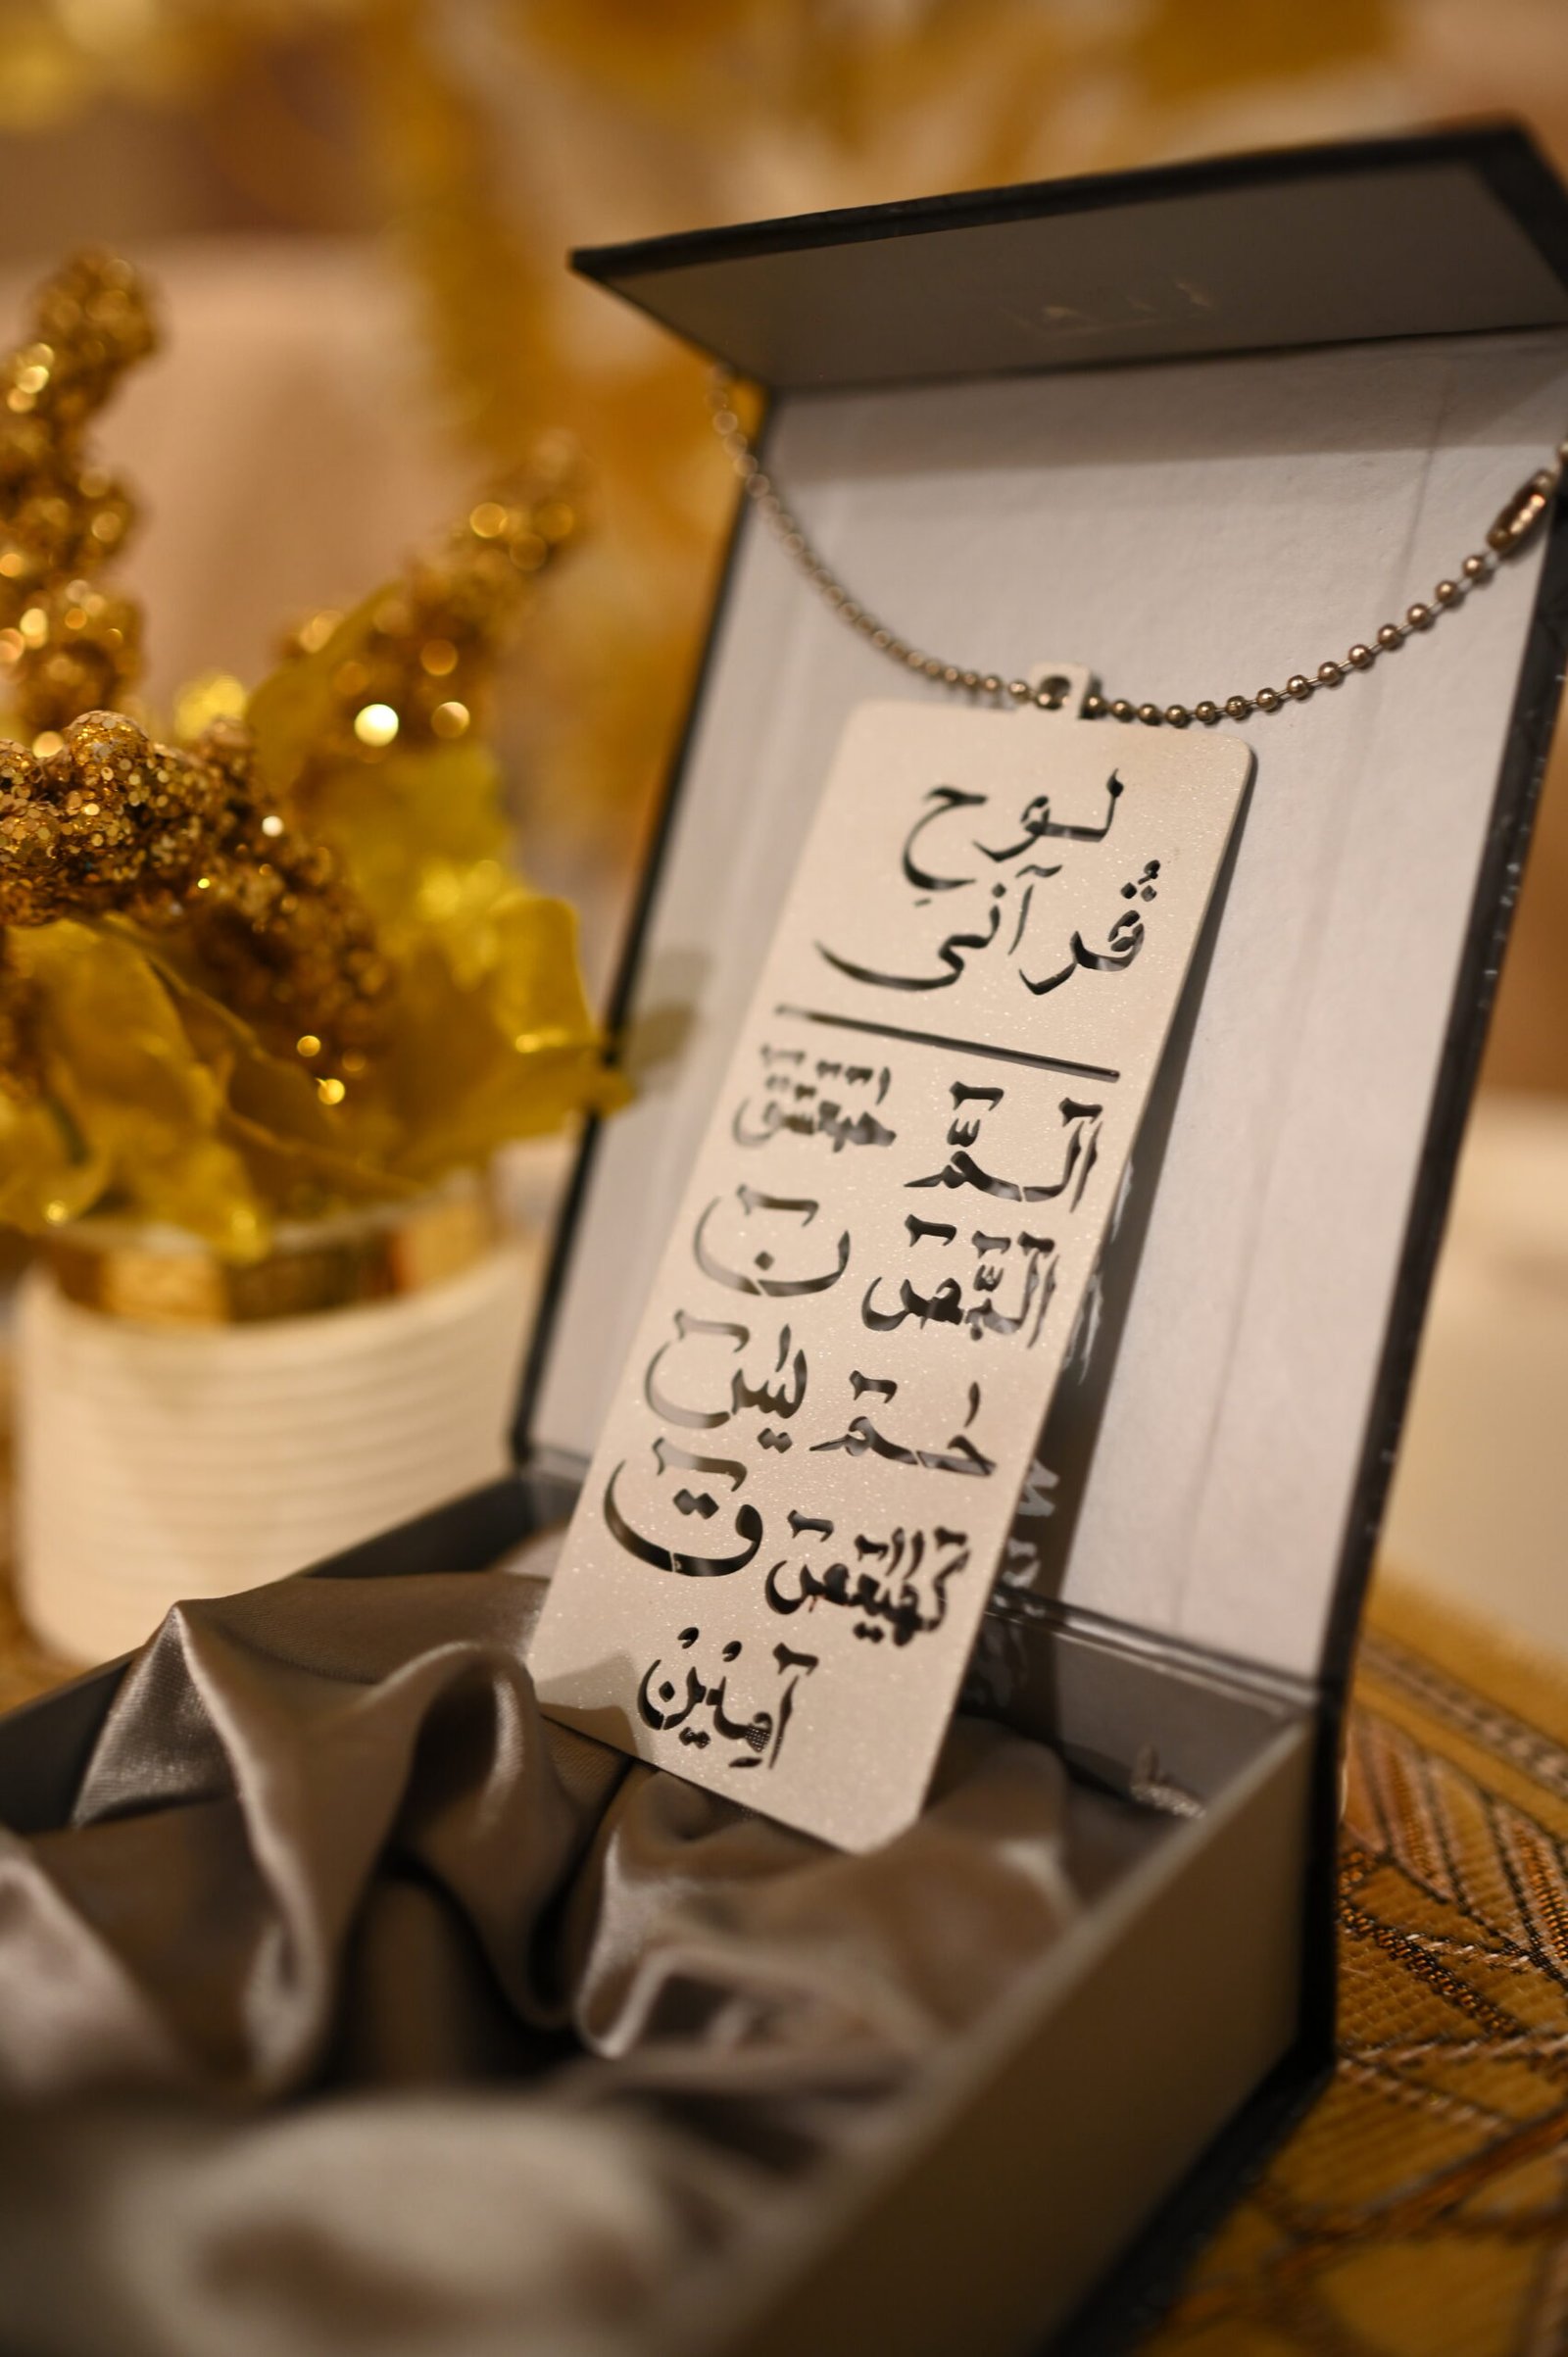 لوحِ
قُرآنی
الٓمّٓ حٰمٓعٓسٓقٓ
الٓمّٓصٓ نٓ
حٰمٓ یٰسٓ
کٓهٰیٰعٓصٓ قٓ
آمِیْنْ